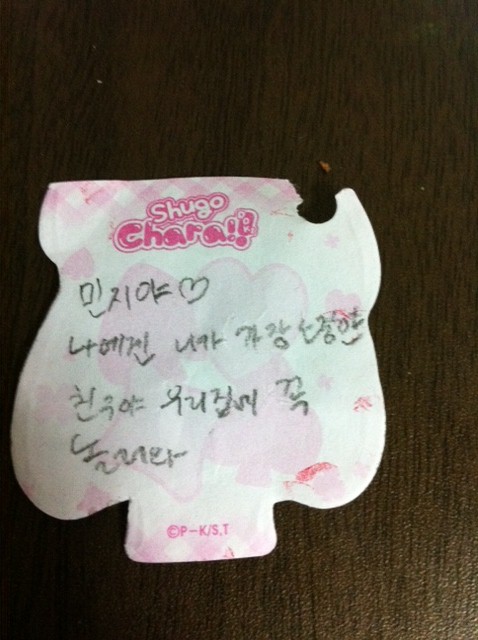 Shugo
Chara!!
민지야♡
나에겐 니가 가장 소중한
친구야 우리집에 꼭
놀러와
©P-K/S,T